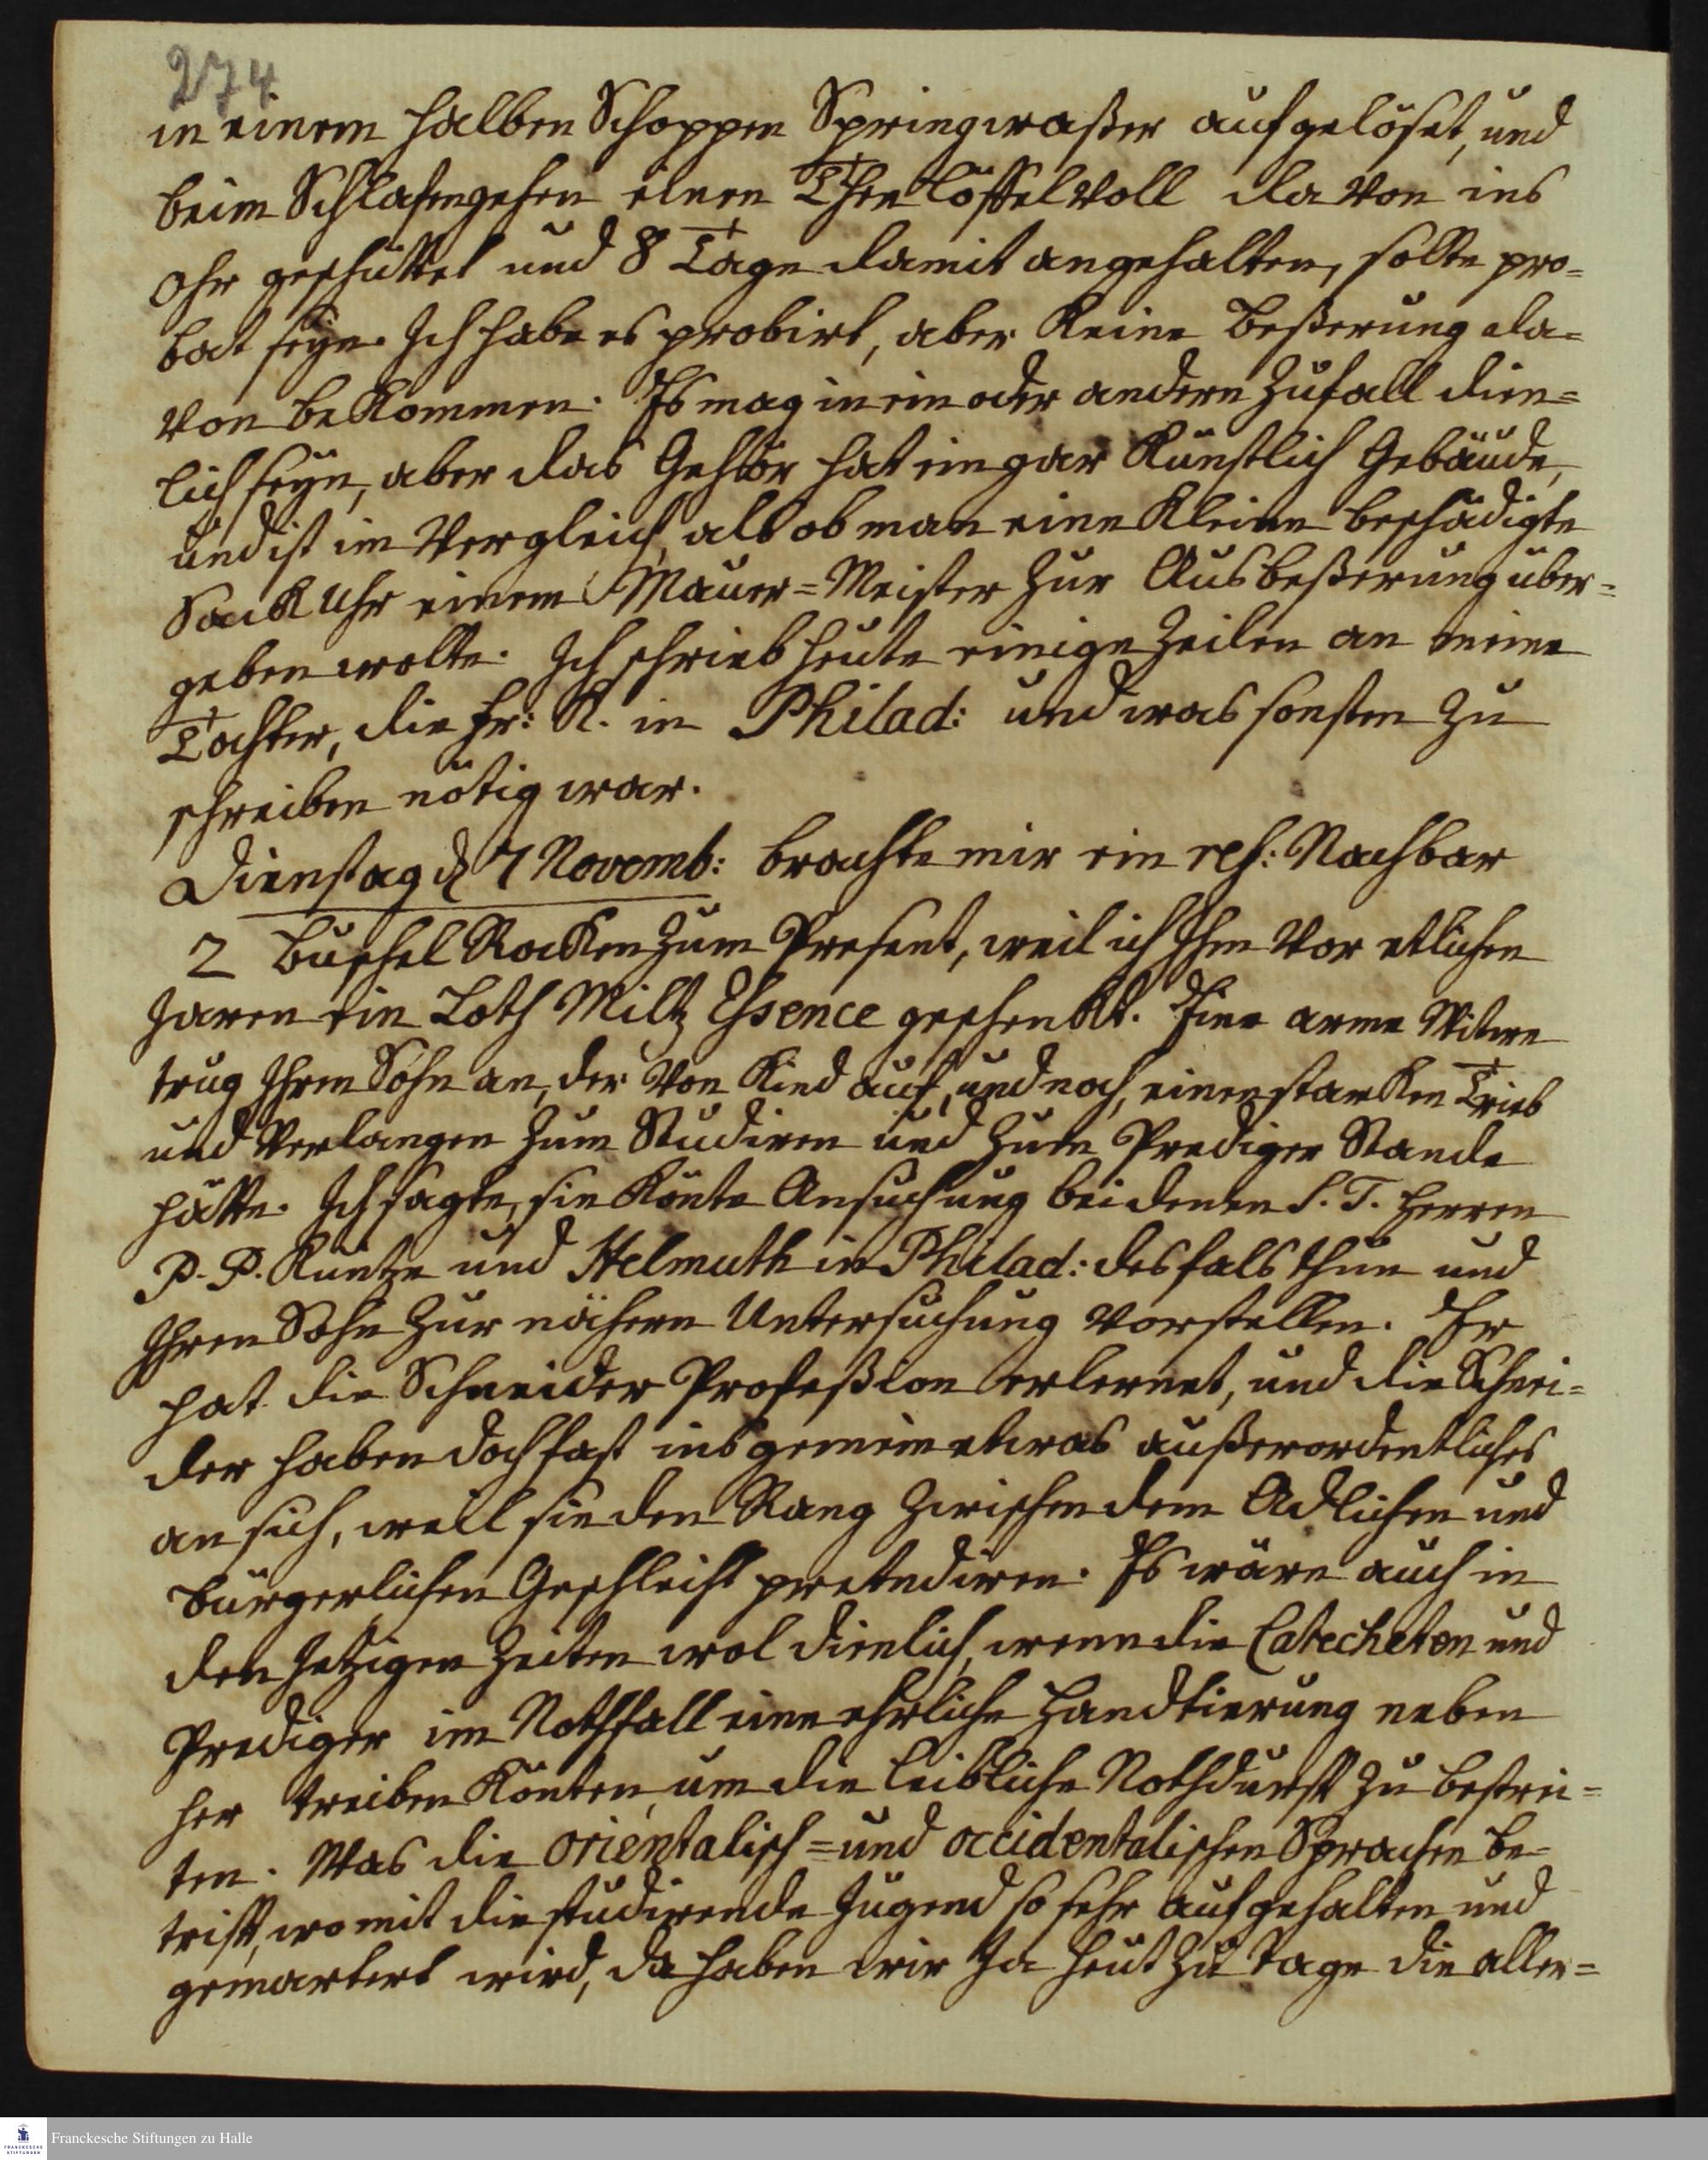 274
in einem halben Schoppen Springwaßer aufgelöset, und
beim Schlafengehen einen Thee löffel voll davon ins
Ohr geschüttet und 8 Tage damit angehalten, solte pro=
bat seyn. Ich habe es probirt, aber keine Beßerung da=
von bekommen. Es mag in ein oder andern Zufall dien=
lich seyn, aber das Gehör hat ein gar künstlich Gebäude,
und ist im Vergleich, als ob man eine kleine beschädigte
SackUhr einem Mauer=Meister zur Ausbeßerung über=
geben wolte. Ich schrieb heute einige Zeilen an meine
Tochter, die Fr: K. in Philad: und was sonsten zu
schreiben nötig war.
Dienstag d 7 Novemb: brachte mir ein ref: Nachbar
2 Buschel Rocken zum Present, weil ich Ihm vor etlichen
Jaren ein Loth Miltz Essence geschenkt. Eine arme Witwe
trug Ihren Sohn an, der von Kind auf, und noch, einen starken Trieb
und Verlangen zum Studiren und zum Prediger Stande
hätte. Ich sagte, sie könte Ansuchung bei denen S. T. Herren
P. P. Kuntze und Helmuth in Philad: desfals thun und
Ihren Sohn zur nähern Untersuchung vorstellen. Er
hat die Schneider Profeßion erlernet, und die Schnei=
der haben doch fast ins gemein etwas außerordentliches
an sich, weil sie den Rang zwischen dem Adlichen und
bürgerlichen Geschlecht pretendiren. Es wäre auch in
den jetzigen Zeiten wol dienlich, wenn die Catecheten und
Prediger im Nothfall eine ehrliche Handtierung neben
her treiben könten, um die leibliche Nothdurfft zu bestrei=
ten. Was die orientalisch= und occidentalischen Sprachen be=
trifft, womit die studirende Jugend so sehr aufgehalten und
gemartert wird, da haben wir ja heut zu Tage die aller=
FRANCKESCHE STIFTUNGEN
Franckesche Stiftungen zu Halle